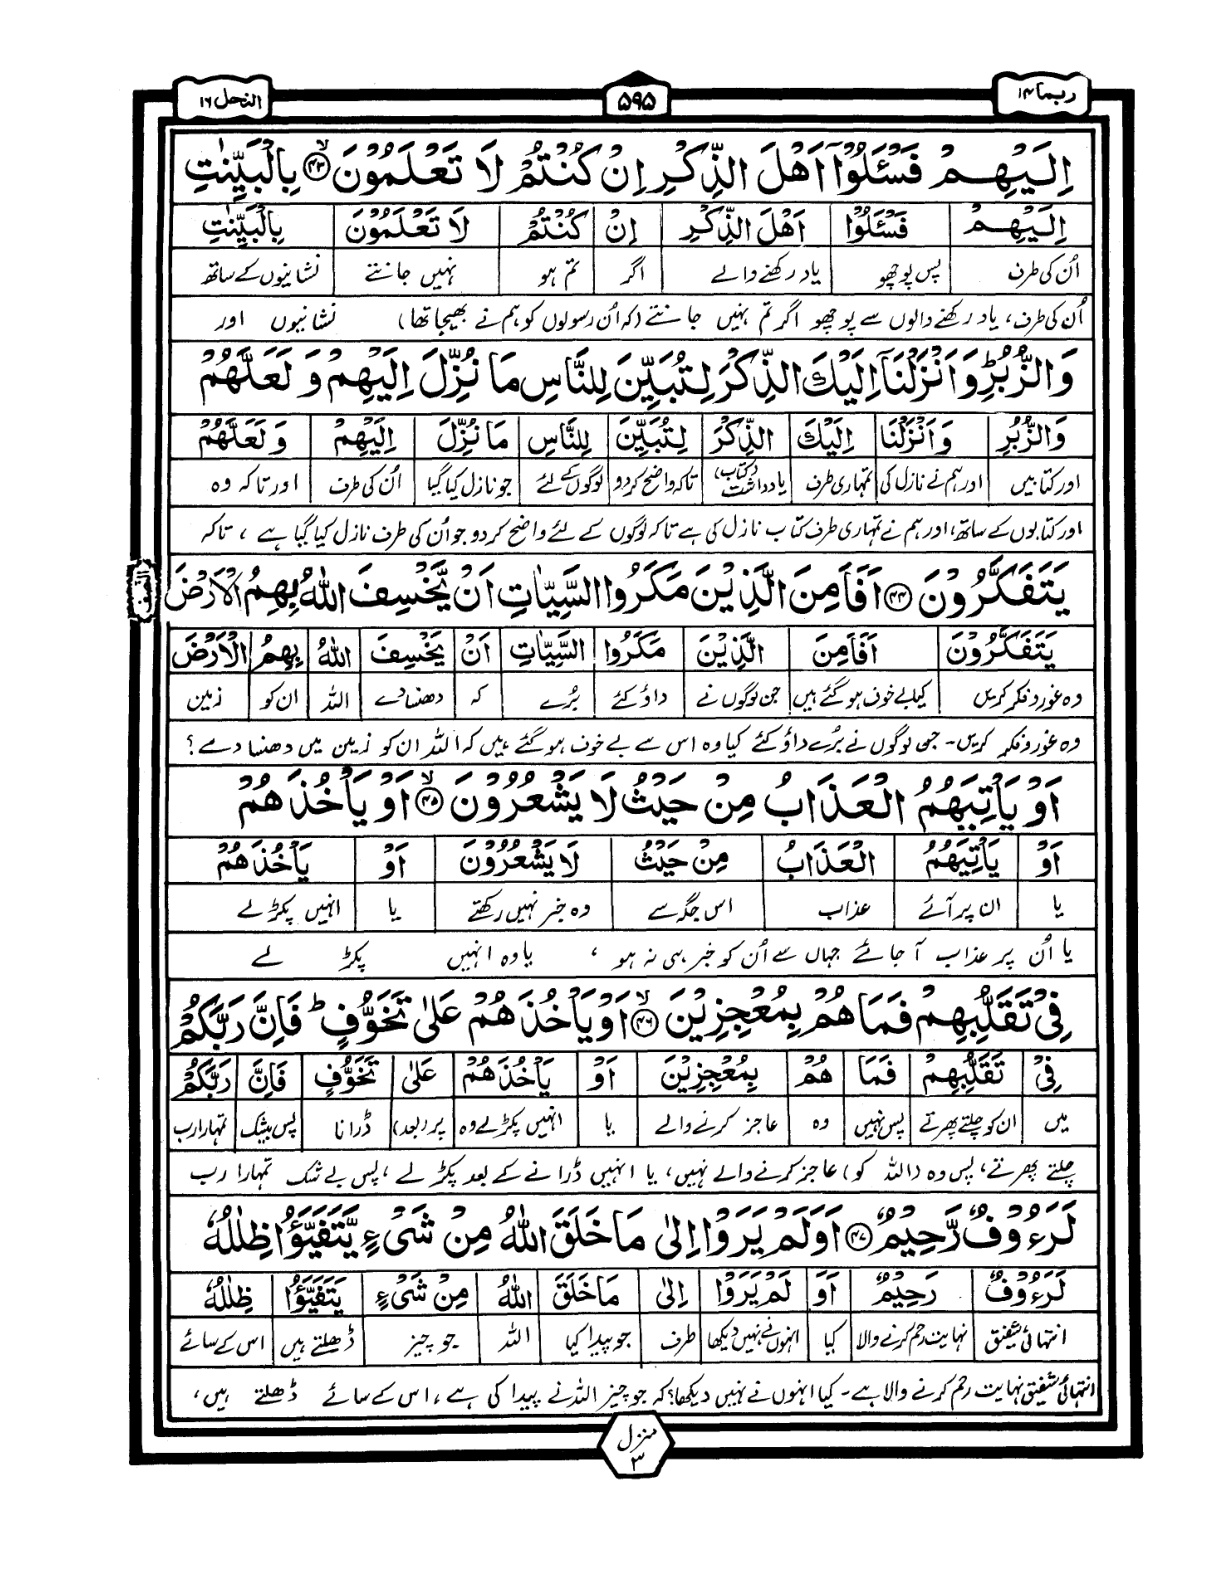 ربما ١٤
٥٩٥
النحل ١٦
اِلَيْهِمْ فَسْـَٔلُوْٓا اَهْلَ الذِّكْرِ اِنْ كُنْتُمْ لَا تَعْلَمُوْنَ ۙ۴۳ بِالْبَيِّنٰتِ
اِلَيْهِمْ فَسْـَٔلُوْا اَهْلَ الذِّكْرِ اِنْ كُنْتُمْ لَا تَعْلَمُوْنَ بِالْبَيِّنٰتِ
اُن کی طرف پس پوچھو یاد رکھنے والے اگر تم ہو نہیں جانتے نشانیوں کے ساتھ
اُن کی طرف، یاد رکھنے والوں سے پوچھو اگر تم نہیں جانتے (کہ اُن رسولوں کو ہم نے بھیجا تھا) نشانیوں اور
وَالزُّبُرِ ؕ وَاَنْزَلْنَآ اِلَيْكَ الذِّكْرَ لِتُبَيِّنَ لِلنَّاسِ مَا نُزِّلَ اِلَيْهِمْ وَلَعَلَّهُمْ
وَالزُّبُرِ وَاَنْزَلْنَا اِلَيْكَ الذِّكْرَ لِتُبَيِّنَ لِلنَّاسِ مَا نُزِّلَ اِلَيْهِمْ وَلَعَلَّهُمْ
اور کتابیں اور ہم نے نازل کی تمہاری طرف یادداشت (کتاب) تاکہ واضح کردو لوگوں کے لئے جو نازل کیا گیا اُن کی طرف اور تاکہ وہ
اور کتابوں کے ساتھ، اور ہم نے تمہاری طرف کتاب نازل کی ہے تاکہ لوگوں کے لئے واضح کردو جو اُن کی طرف نازل کیا گیا ہے، تاکہ
يَتَفَكَّرُوْنَ ۴۴ اَفَاَمِنَ الَّذِيْنَ مَكَرُوا السَّيِّاٰتِ اَنْ يَّخْسِفَ اللّٰهُ بِهِمُ الْاَرْضَ
يَتَفَكَّرُوْنَ اَفَاَمِنَ الَّذِيْنَ مَكَرُوا السَّيِّاٰتِ اَنْ يَّخْسِفَ اللّٰهُ بِهِمُ الْاَرْضَ
وہ غور و فکر کریں کیا بے خوف ہوگئے ہیں جن لوگوں نے داؤ کئے بُرے کہ دھنسا دے اللہ ان کو زمین
وہ غور و فکر کریں۔ جن لوگوں نے بُرے داؤ کئے کیا وہ اس سے بے خوف ہوگئے ہیں کہ اللہ ان کو زمین میں دھنسا دے؟
اَوْ يَاْتِيَهُمُ الْعَذَابُ مِنْ حَيْثُ لَا يَشْعُرُوْنَ ۙ۴۵ اَوْ يَاْخُذَهُمْ
اَوْ يَاْتِيَهُمُ الْعَذَابُ مِنْ حَيْثُ لَا يَشْعُرُوْنَ اَوْ يَاْخُذَهُمْ
یا ان پر آئے عذاب اس جگہ سے وہ خبر نہیں رکھتے یا انہیں پکڑ لے
یا اُن پر عذاب آ جائے جہاں سے اُن کو خبر ہی نہ ہو، یا وہ انہیں پکڑ لے
فِيْ تَقَلُّبِهِمْ فَمَا هُمْ بِمُعْجِزِيْنَ ۙ۴۶ اَوْ يَاْخُذَهُمْ عَلٰى تَخَوُّفٍ ؕ فَاِنَّ رَبَّكُمْ
فِيْ تَقَلُّبِهِمْ فَمَا هُمْ بِمُعْجِزِيْنَ اَوْ يَاْخُذَهُمْ عَلٰى تَخَوُّفٍ فَاِنَّ رَبَّكُمْ
میں ان کو چلتے پھرتے پس نہیں وہ عاجز کرنے والے یا انہیں پکڑ لے وہ پر (بعد) ڈرانا پس بیشک تمہارا رب
چلتے پھرتے، پس وہ (اللہ کو) عاجز کرنے والے نہیں، یا انہیں ڈرانے کے بعد پکڑ لے، پس بے شک تمہارا رب
لَرَءُوْفٌ رَّحِيْمٌ ۴۷ اَوَلَمْ يَرَوْا اِلٰى مَا خَلَقَ اللّٰهُ مِنْ شَيْءٍ يَّتَفَيَّؤُا ظِلٰلُهٗ
لَرَءُوْفٌ رَحِيْمٌ اَوَ لَمْ يَرَوْا اِلٰى مَا خَلَقَ اللّٰهُ مِنْ شَيْءٍ يَتَفَيَّؤُا ظِلٰلُهٗ
انتہائی شفیق نہایت رحم کرنے والا کیا انہوں نے نہیں دیکھا طرف جو پیدا کیا اللہ جو چیز ڈھلتے ہیں اس کے سائے
انتہائی شفیق نہایت رحم کرنے والا ہے۔ کیا انہوں نے نہیں دیکھا؟ کہ جو چیز اللہ نے پیدا کی ہے، اس کے سائے ڈھلتے ہیں،
منزل ٣